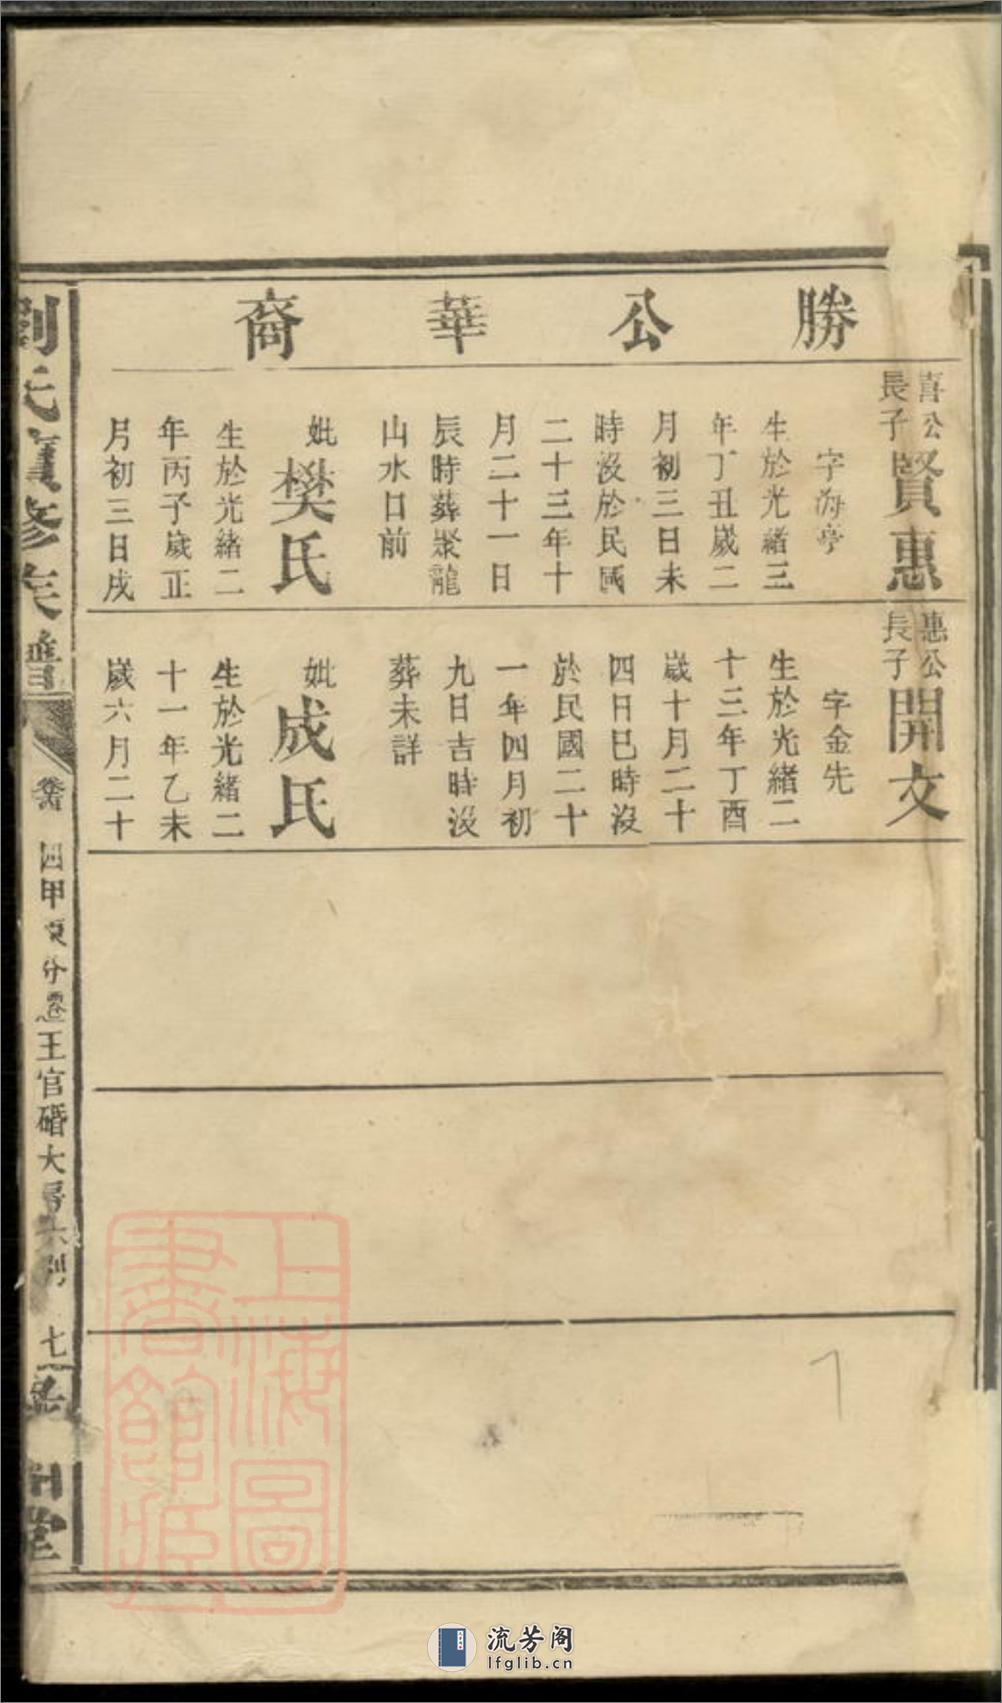 勝公華裔
喜公
長子
賢惠
字海亭
生於光緒三
年丁丑歲二
月初三日未
時沒於民國
二十三年十
月二十一日
辰時葬聚龍
山水口前
妣
樊氏
生於光緒二
年丙子歲正
月初三日戌
惠公
長子
開文
字金先
生於光緒二
十三年丁酉
歲十月二十
四日巳時沒
於民國二十
一年四月初
九日吉時沒
葬未詳
妣
成氏
生於光緒二
十一年乙未
歲六月二十
劉氏 修族譜
四甲 分遷王官碈大房六 七
堂
上海圖書館藏
流芳阁
lfglib.cn